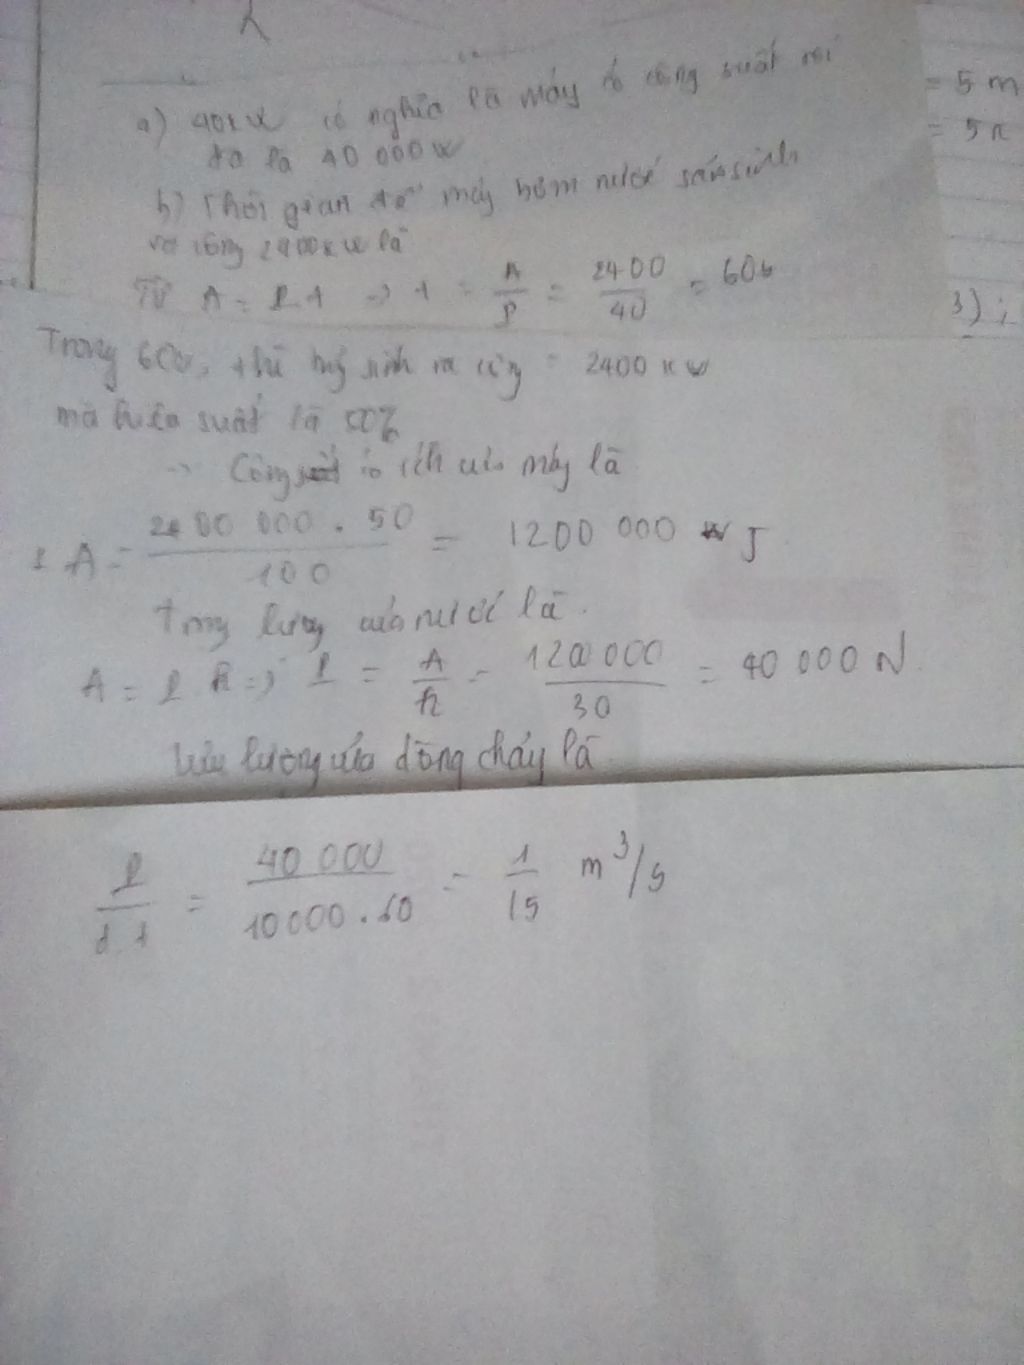 = 5 m
= 5 n
a) 40kW có nghĩa là máy có công suất tối
đa là 40 000W
b) Thời gian để máy bơm nước sản sinh
ra công 2400kW là
Từ A = P.t => t = A/P = 2400/40 = 60s
3) ;
Trong 60s, thì máy sinh ra công = 2400 kW
mà hiệu suất là 50%
-> Công suất có ích của máy là
A = 2400 000 . 50 / 100 = 1200 000 J
trọng lượng của nước là.
A = P h => P = A/h = 1200000/30 = 40 000 N.
Lưu lượng của dòng chảy là
P/d.t = 40 000/10000.60 = 1/15 m³/s